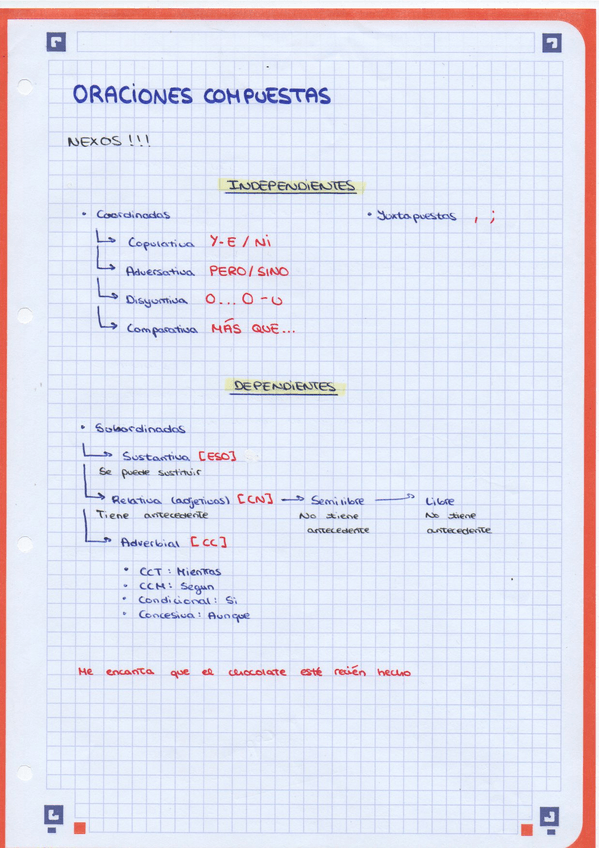 ORACIONES COMPUESTAS
NEXOS !!!
INDEPENDIENTES
• Coordinadas • Yuxtapuestas , ;
Copulativa Y-E / Ni
Adversativa PERO/SINO
Disyuntiva O...O-U
Comparativa MÁS QUE...
DEPENDIENTES
• Subordinadas
Sustantiva [ESO]
Se puede sustituir
Relativa (adjetivas) [CN] → Semilibre → Libre
Tiene antecedente No tiene No tiene
antecedente antecedente
Adverbial [CC]
• CCT : Mientras
• CCM : Segun
• Condicional : Si
• Concesiva : Aunque
Me encanta que el chocolate esté recién hecho